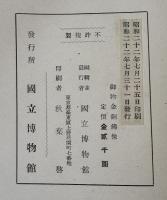 昭和二十二年七月二十五日印刷
昭和二十二年七月三十一日發行
御物金銅佛像
定價金貳千圓
不許複製
編輯兼
發行者
國立博物館
東京都台東區上野公園
印刷者
秋葉啓
發行所
國立博物館